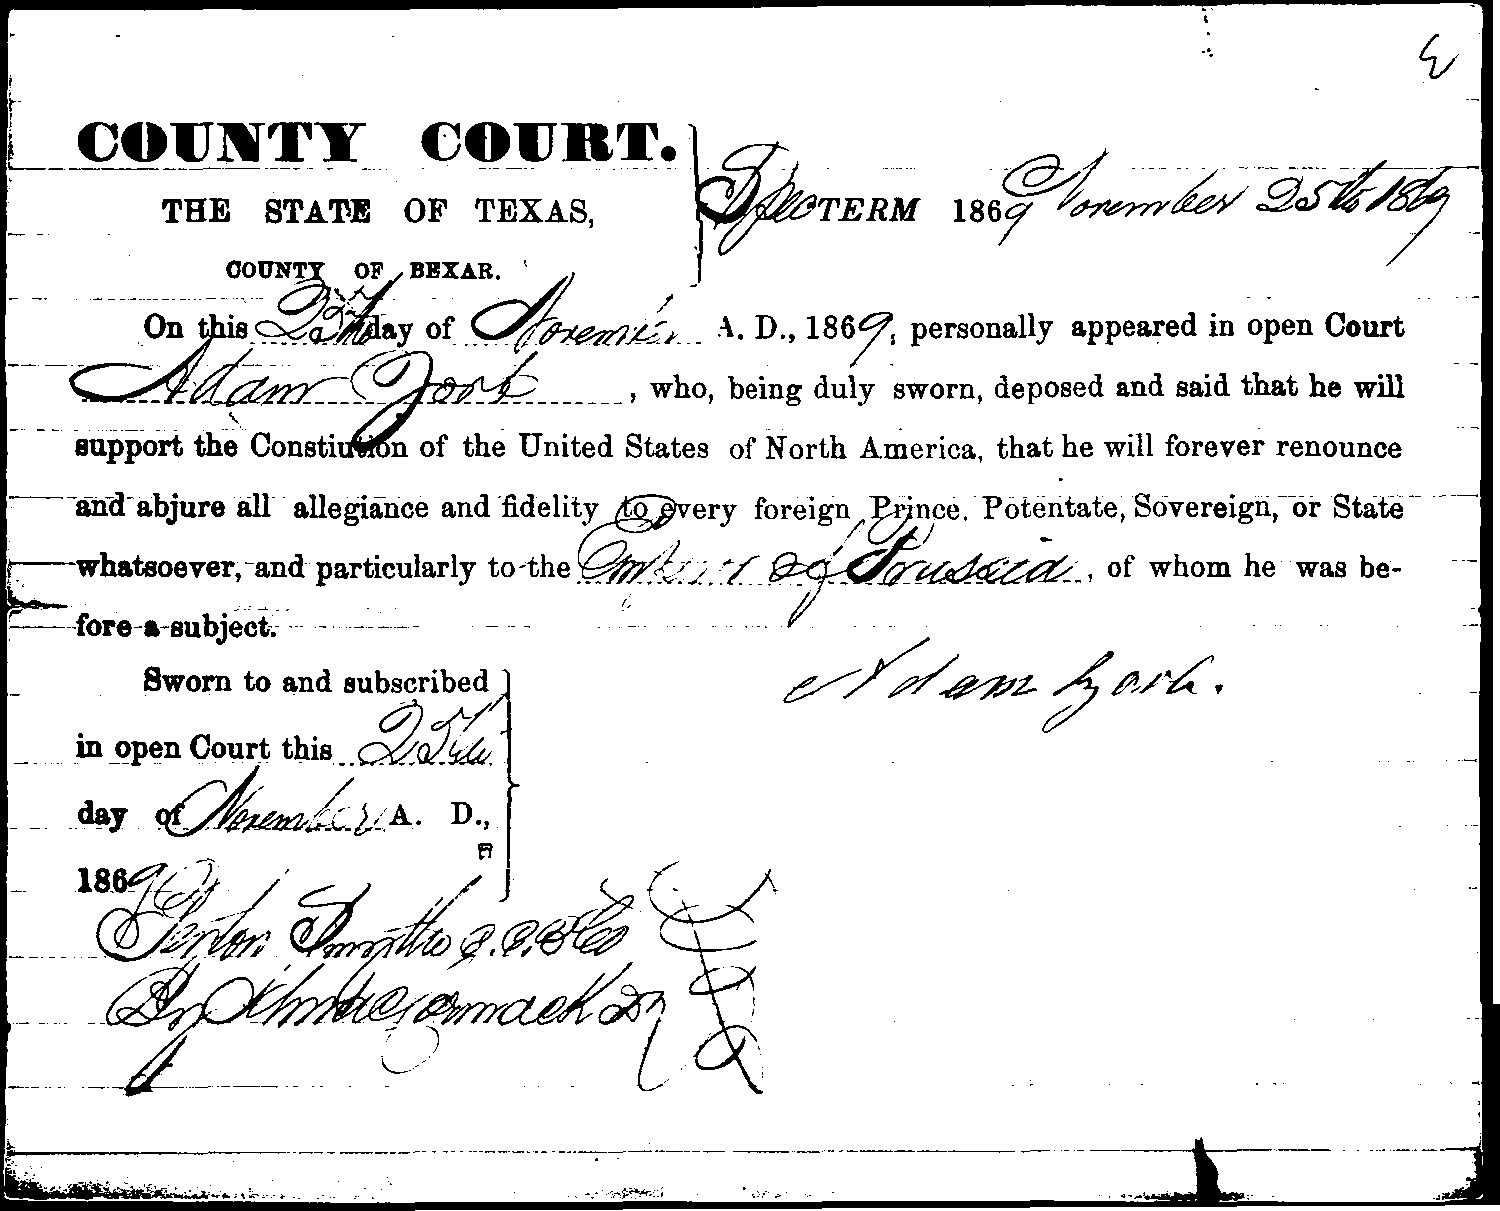 COUNTY COURT.
THE STATE OF TEXAS,
COUNTY OF BEXAR.
Spec TERM 1869 November 25th 1869
On this 25th day of November A. D., 1869, personally appeared in open Court
Adam Zork, who, being duly sworn, deposed and said that he will
support the Constiution of the United States of North America, that he will forever renounce
and abjure all allegiance and fidelity to every foreign Prince, Potentate, Sovereign, or State
whatsoever, and particularly to the Emperor of Prussia, of whom he was be-
fore a subject.
Adam Zork.
Sworn to and subscribed
in open Court this 25th
day of November A. D.,
1869
Smythe C.C.B.Co
By McCormack Dy